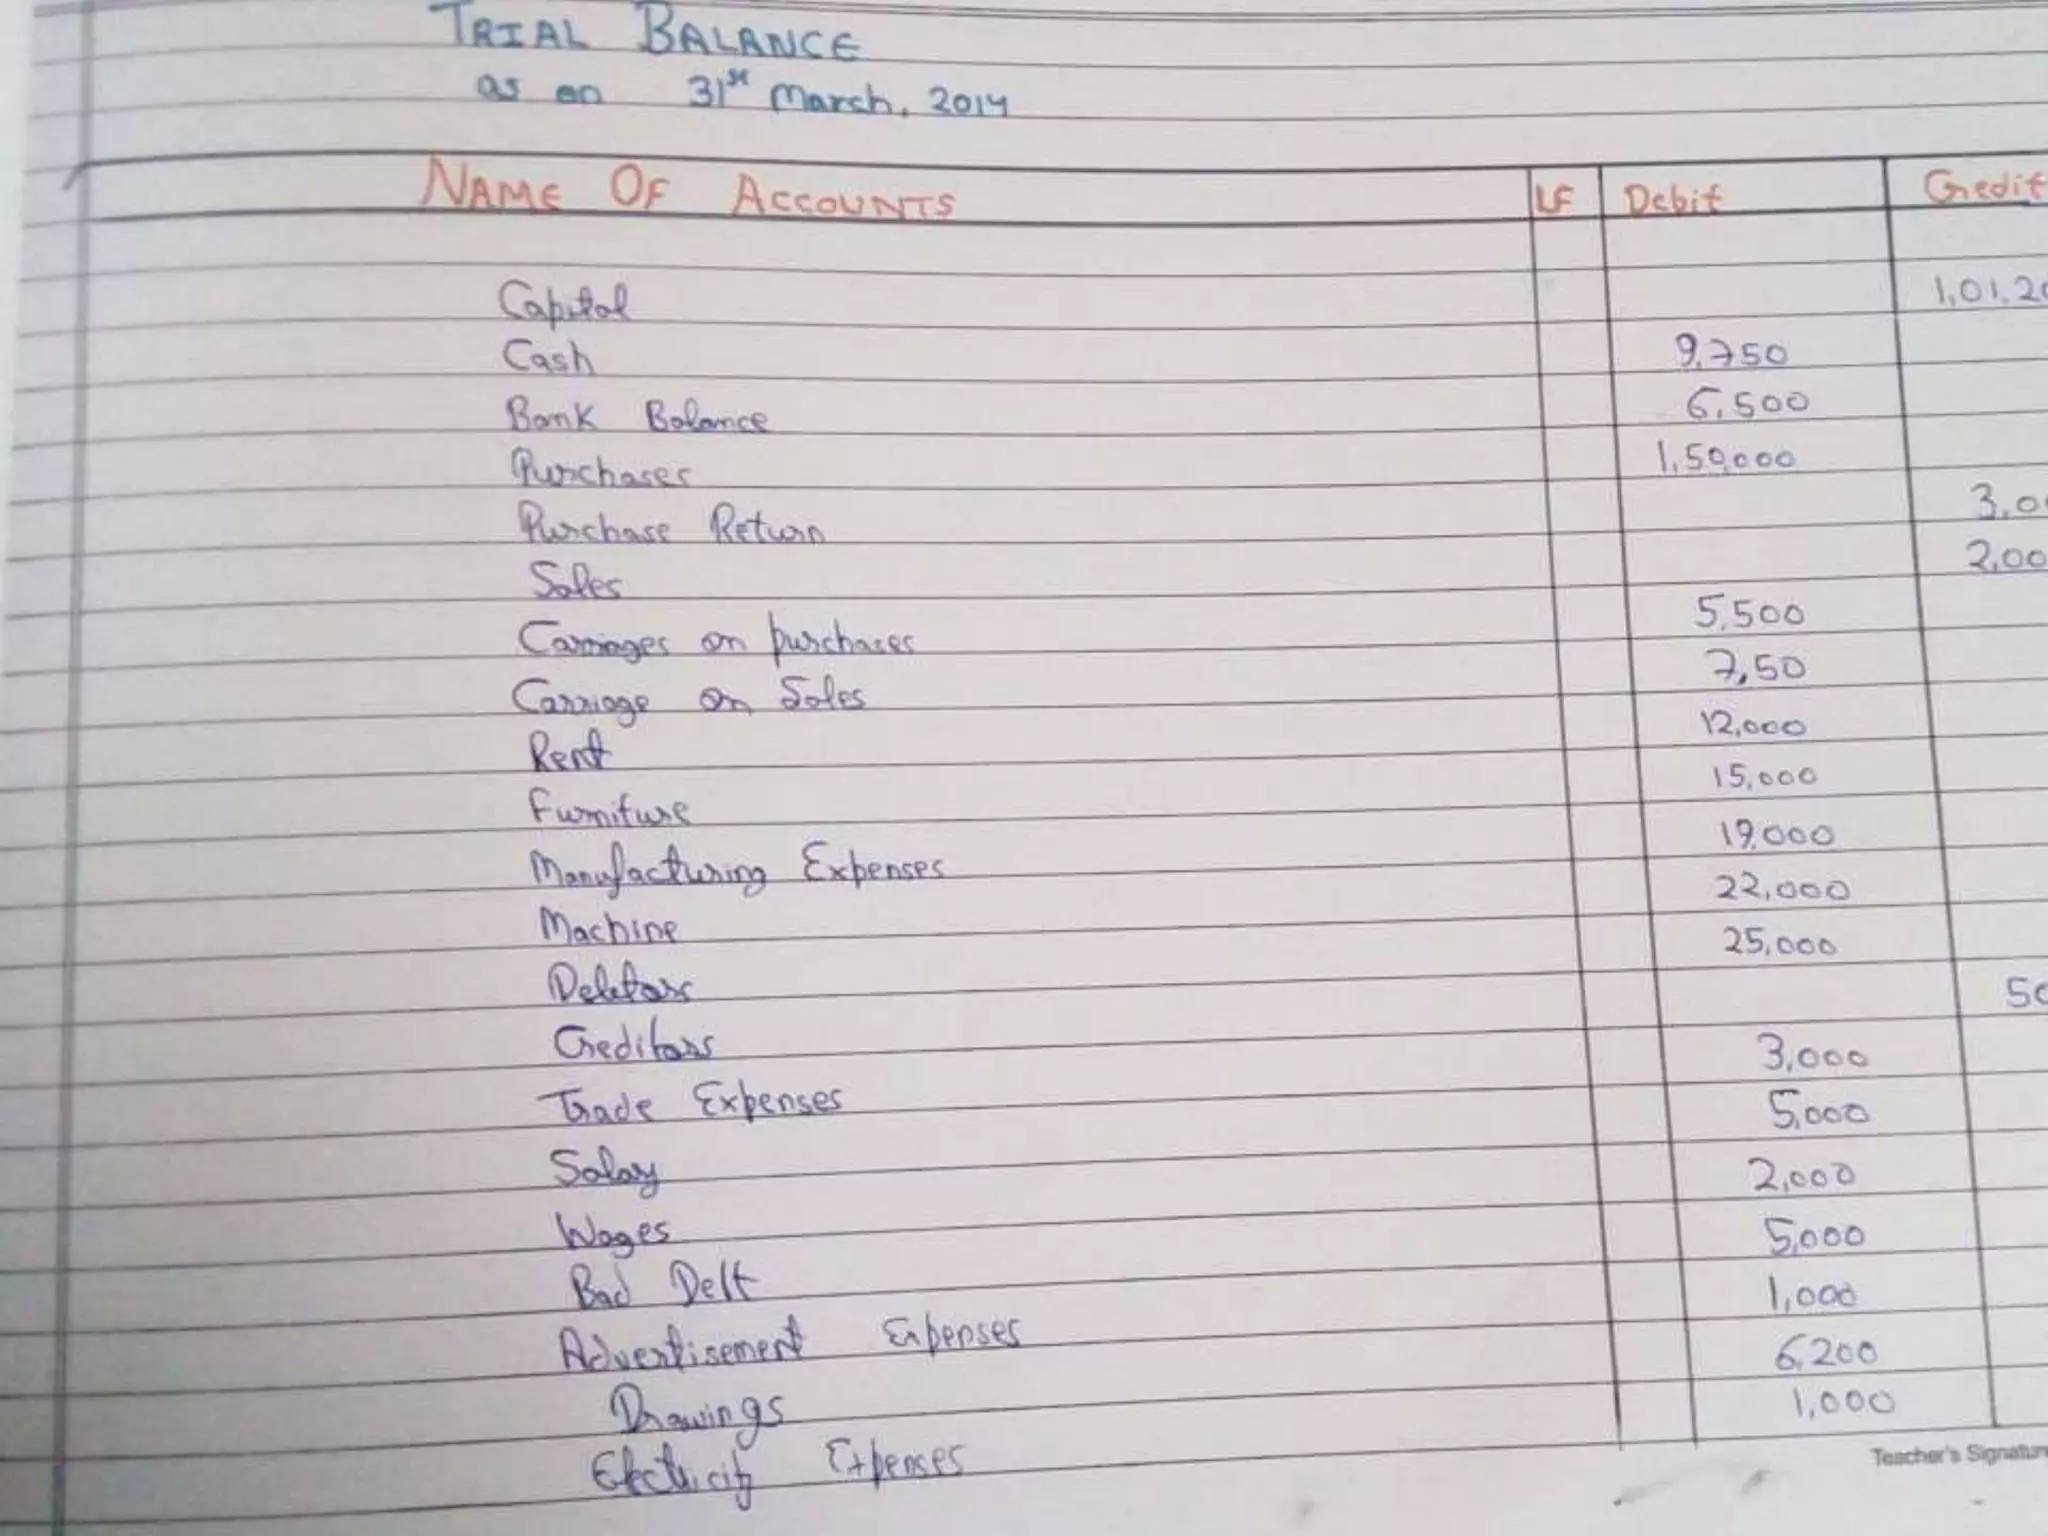 TRIAL BALANCE
as on 31st March, 2014
NAME OF ACCOUNTS LF Debit Credit
Capital 1,01,20
Cash 9,750
Bank Balance 6,500
Purchases 1,50,000
Purchase Return 3,0
Sales 2,00
Carriages on purchases 5,500
Carriage on Sales 7,50
Rent 12,000
Furniture 15,000
Manufacturing Expenses 19,000
Machine 22,000
Debtors 25,000
Creditors 50
Trade Expenses 3,000
Salary 5,000
Wages 2,000
Bad Debt 5,000
Advertisement Expenses 1,000
Drawings 6,200
Electricity Expenses 1,000
Teacher's Signature